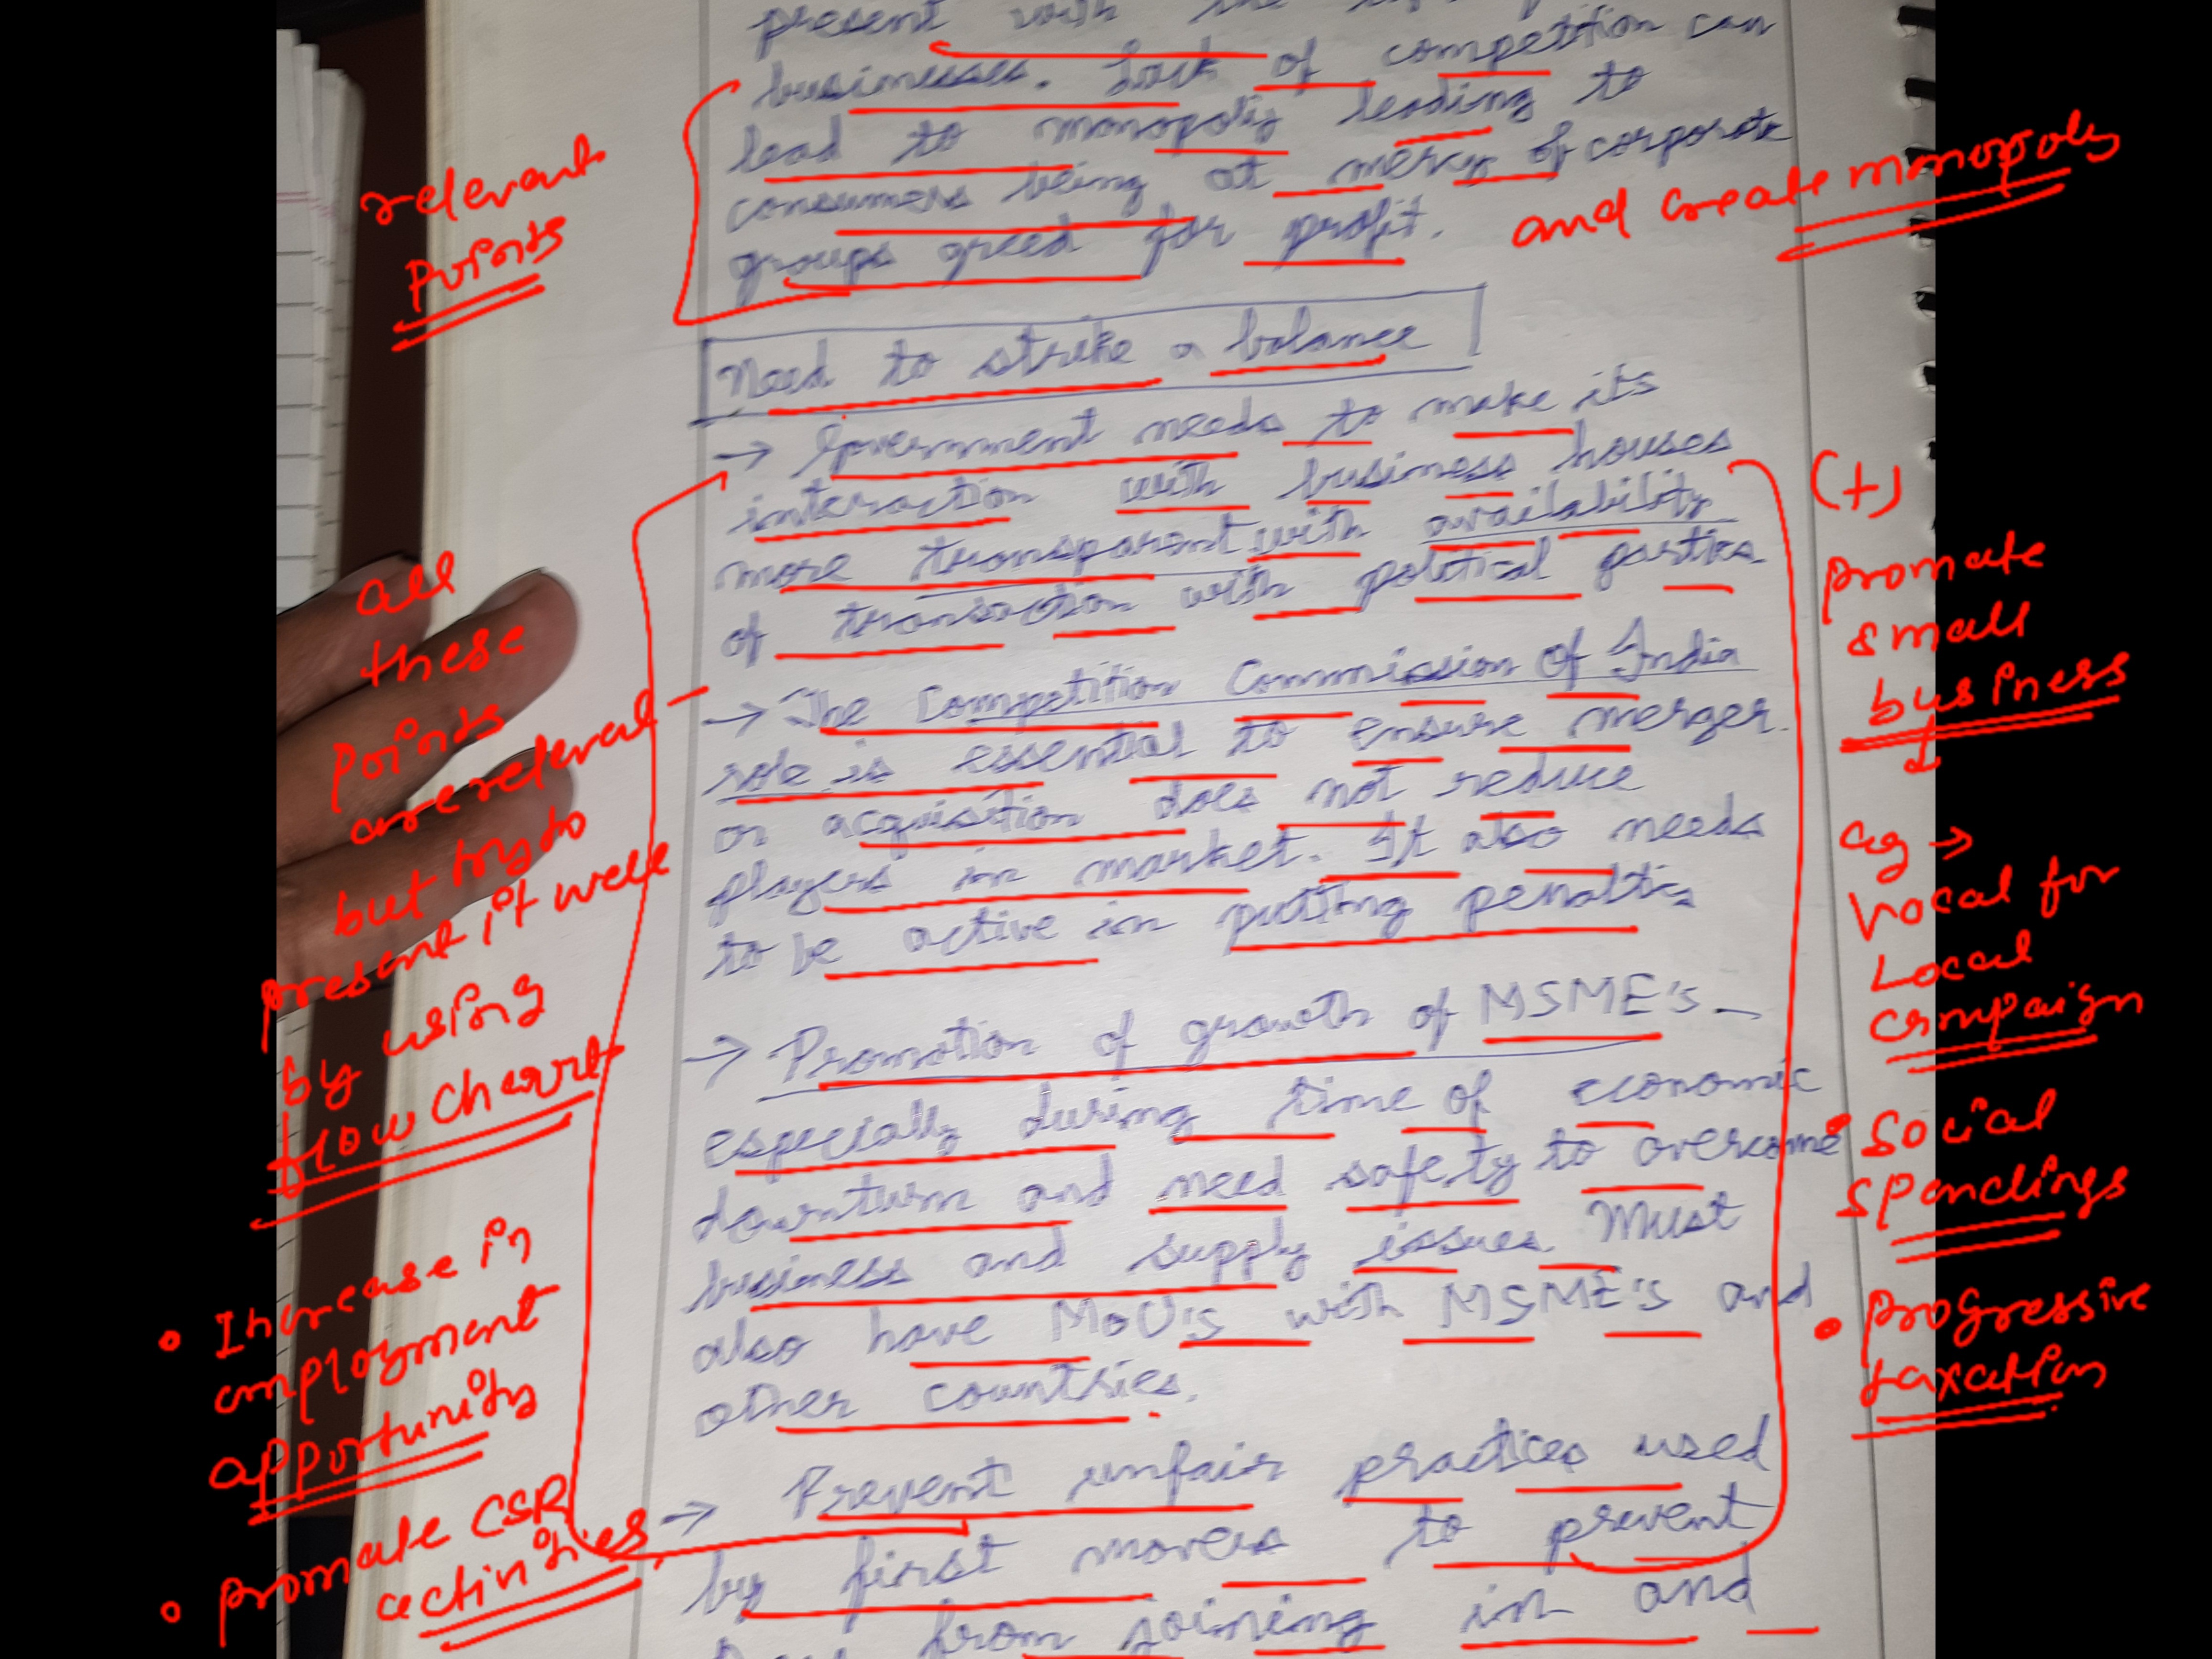 present with the
businesses. Lack of competition can
lead to monopoly leading to
consumers being at mercy of corporate
groups greed for profit.
and create monopoly
relevant
points
Need to strike a balance
→ Government needs to make its
interaction with business houses
more transparent with availability
of transaction with political parties.
→ The Competition Commission of India
role is essential to ensure merger
or acquisition does not reduce
players in market. It also needs
to be active in putting penalties
→ Promotion of growth of MSME's -
especially during time of economic
downturn and need safety to overcome
business and supply issues. Must
also have MoU's with MSME's and
other countries.
→ Prevent unfair practices used
by first movers to prevent
from joining in and
all
these
points
are relevant
but try to
present it well
by using
flow chart
• Increase in
employment
opportunity
• promote CSR
activities
(+)
promote
small
business
eg →
Vocal for
Local
campaign
• Social
spendings
• progressive
taxation